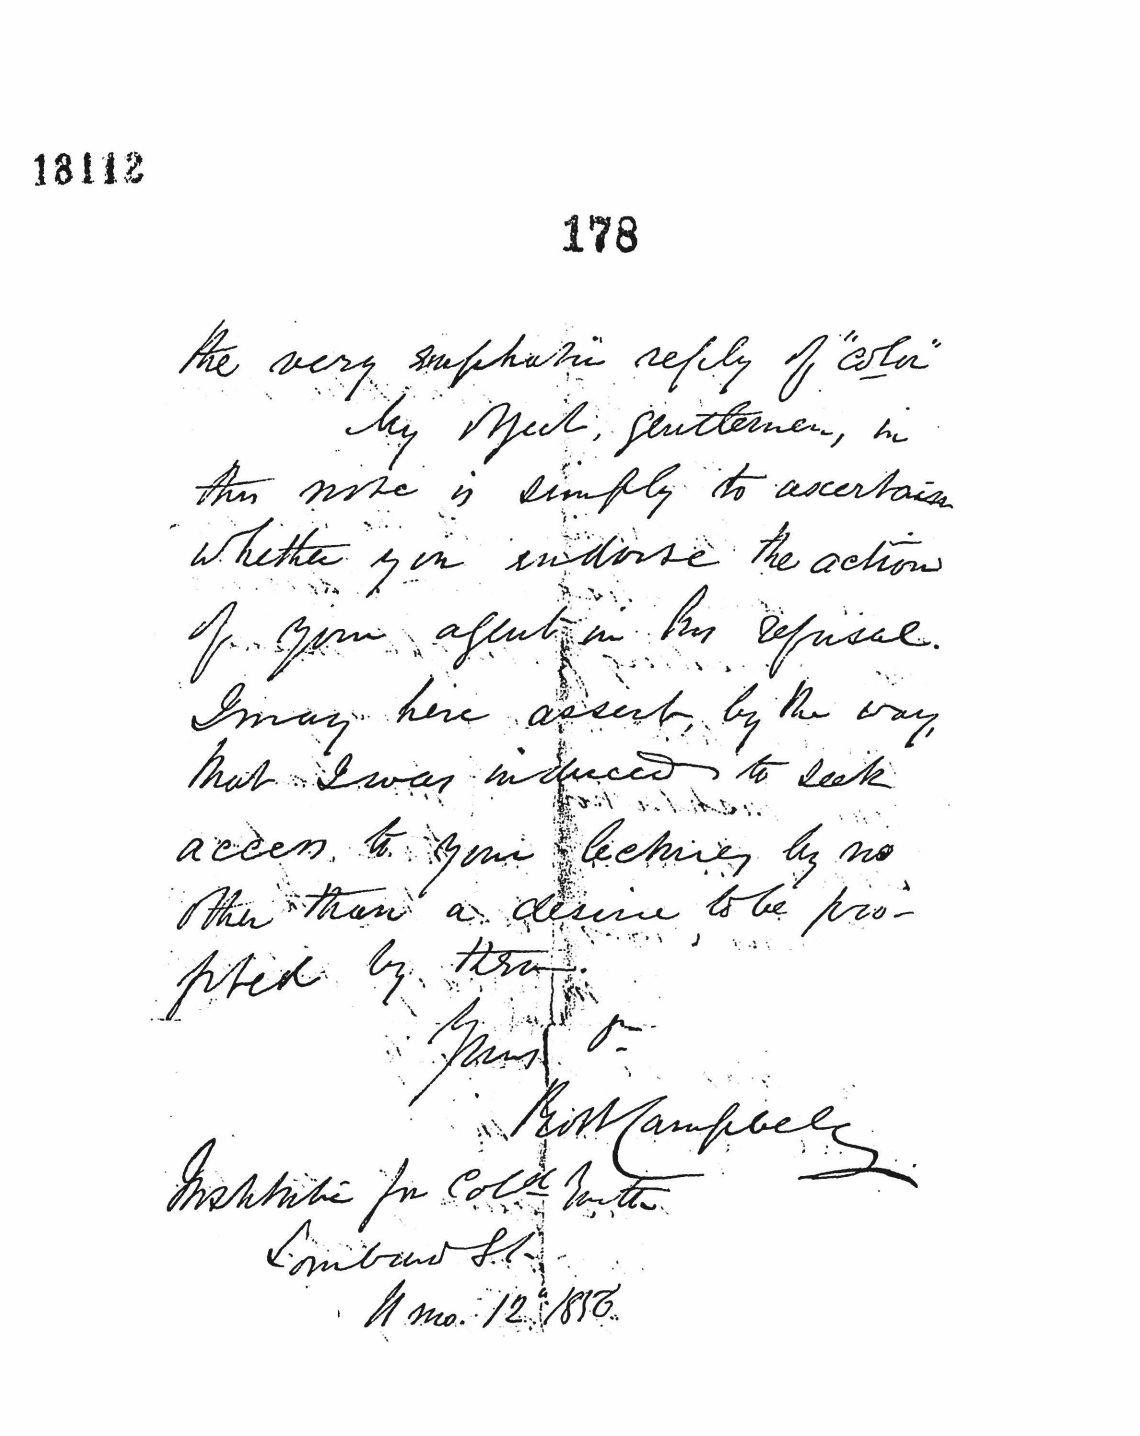 18112
178
the very emphatic reply of "color"
My object, gentlemen, in
this note is simply to ascertain
whether you endorse the action
of your agent in his refusal.
I may here assert, by the way,
that I was induced to seek
access to your lectures by no
other than a desire to be pro-
fited by them.
Yours
Robt Campbell
Institute for Cold Youth
Lombard St.
11 mo. 12" 1856